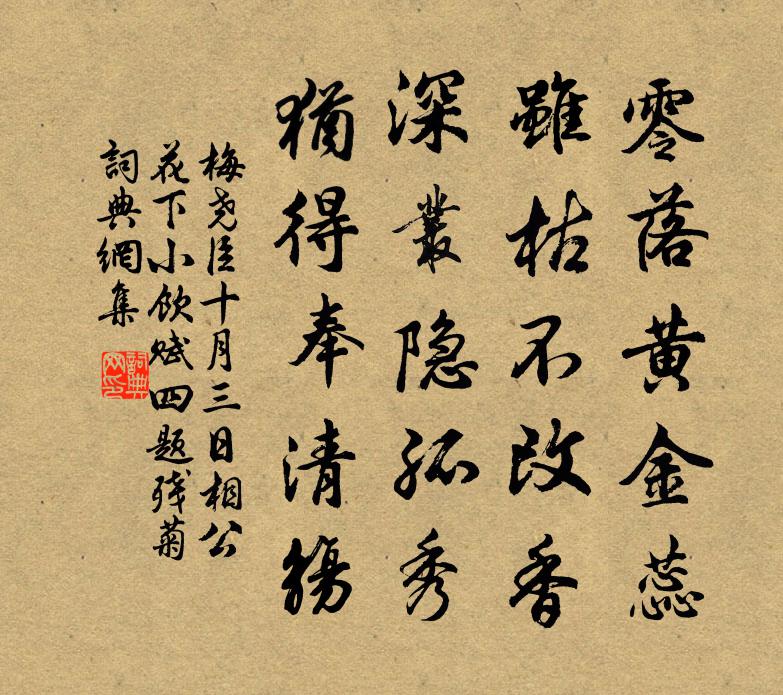 零落黄金蕊
雖枯不改香
深叢隐孤秀
猶得奉清觴
梅尧臣十月三日相公
花下小飲赋四题残菊
詞典網集
詞典网印